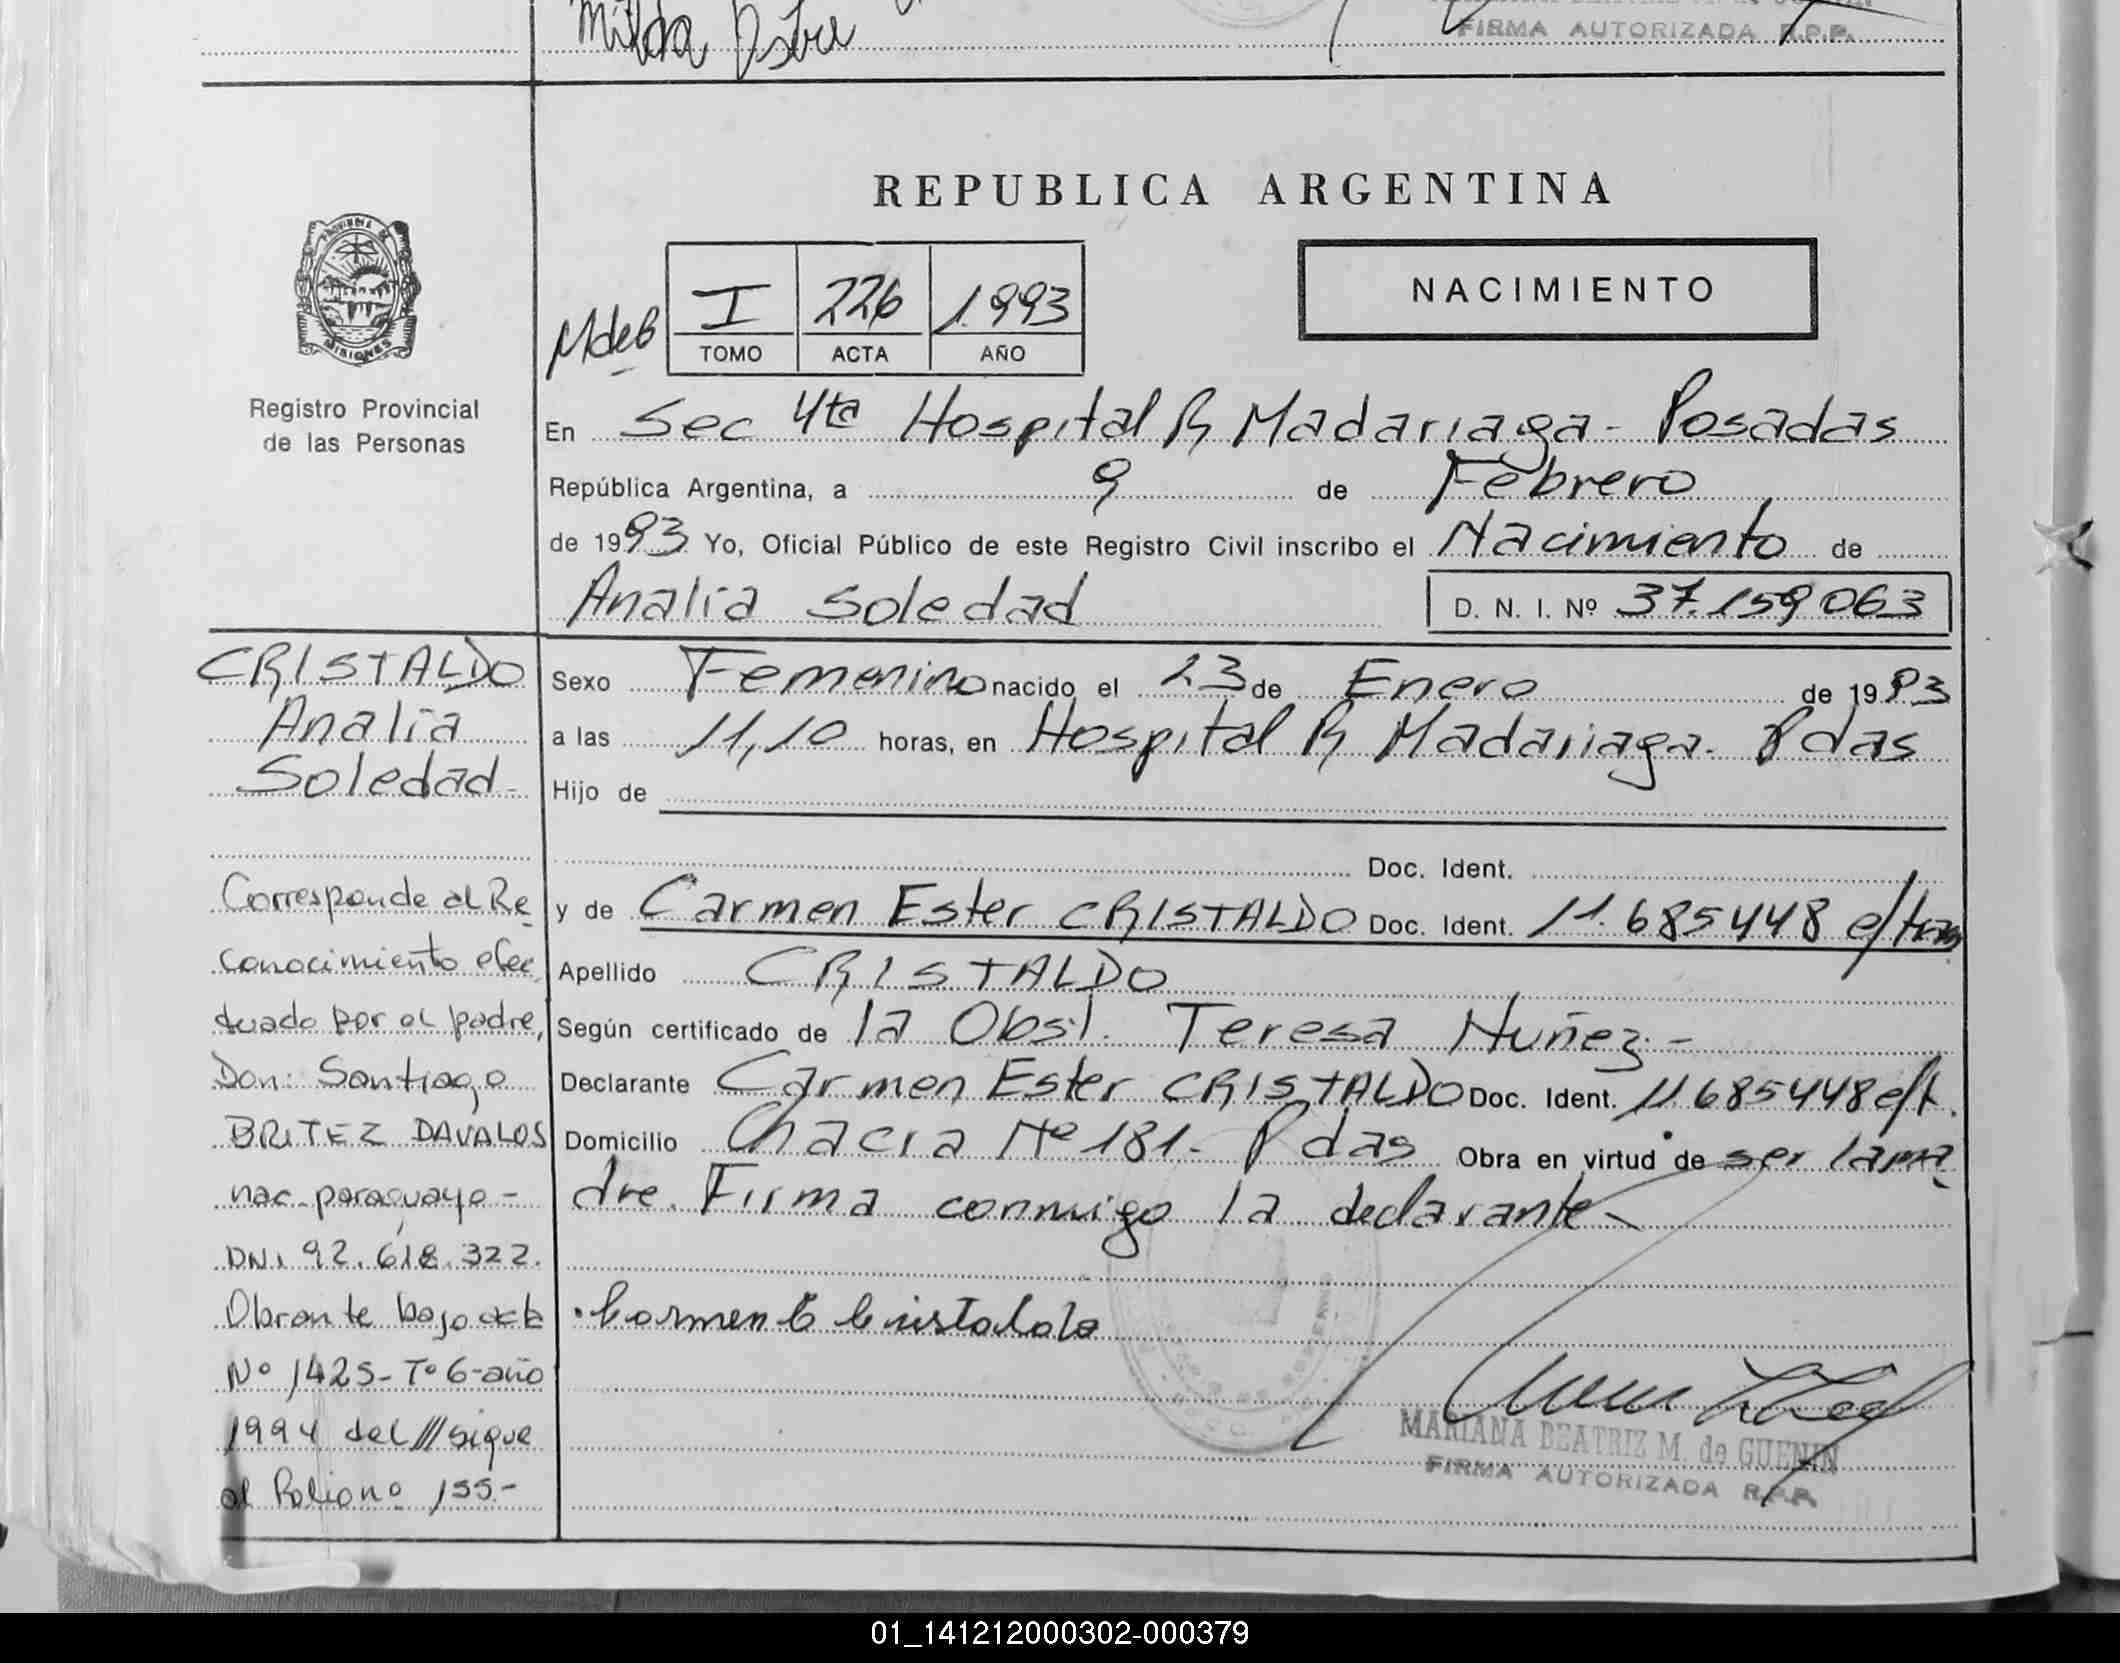 Milda
FIRMA AUTORIZADA R.P.P.
REPUBLICA ARGENTINA
PROVINCIA DE
MISIONES
Registro Provincial
de las Personas
MdeB
I 226 1993
TOMO ACTA AÑO
NACIMIENTO
En Sec 4ta Hospital R Madariaga - Posadas
República Argentina, a 9 de Febrero
de 1993 Yo, Oficial Público de este Registro Civil inscribo el Nacimiento de
Analia Soledad D. N. I. Nº 37.159063
CRISTALDO
Analia
Soledad-
Sexo Femenino nacido el 23 de Enero de 1993
a las 11,10 horas, en Hospital R Madariaga - Pdas
Hijo de
Doc. Ident.
y de Carmen Ester CRISTALDO Doc. Ident. 11.685448 e/tram
Apellido CRISTALDO
Según certificado de la Obst. Teresa Nuñez -
Declarante Carmen Ester CRISTALDO Doc. Ident. 11685448 e/t.
Domicilio Chacra Nº 181 - Pdas Obra en virtud de ser la ma
dre. Firma conmigo la declarante -
Corresponde al Re
conocimiento efec
tuado por el padre,
Don: Santiago
BRITEZ DAVALOS
nac. paraguayo -
DNI 92.618.322.
Obrante bajo acta
Nº 1425 - Tº 6 - año
1994 del /// sigue
al Folio nº 155.-
Carmen E Cristaldo
MARIANA BEATRIZ M. de GUENIN
FIRMA AUTORIZADA R.P.P.
01_141212000302-000379